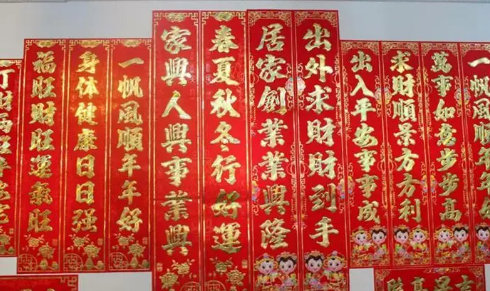 一帆風
萬事如意步步高
求財順景方方利
出入平安事事成
出外求財財到手
居家創業業興隆
春夏秋冬行好運
家興人興事業興
一帆風順年年好
身体健康日日强
福旺財旺運氣旺